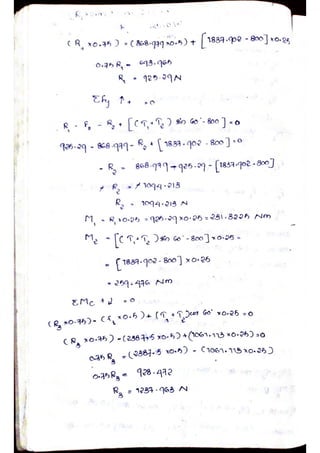 (R₁ x0.75) = (868.979 x0.5) + [1837.902 - 800] x0.25
0.75 R₁ = 693.965
R₁ = 925.29N
ΣFy ↑+ =0
R₁ - F₂ - R₂ + [(T₁+T₂) sin 60° - 800] = 0
925.29 - 868.979 - R₂ + [1837.902 - 800] = 0
- R₂ = 868.979 - 925.29 - [1837.902 - 800]
R₂ = 1094.213
R₂ = 1094.213 N
M₁ = R₁ x0.25 = 925.29 x0.25 = 231.3225 Nm
M₂ = [(T₁+T₂) sin 60° - 800] x0.25 =
= [1837.902 - 800] x0.25
= 259.476 Nm
ΣMc + = 0
(R₃ x0.75) - (F₁ x0.5) + (T₁+T₂) cos 60° x0.25 = 0
(R₃ x0.75) - (2387.5 x0.5) + (1061.113 x0.25) = 0
0.75 R₃ = (2387.5 x0.5) - (1061.113 x0.25)
0.75 R₃ = 928.472
R₃ = 1237.963 N